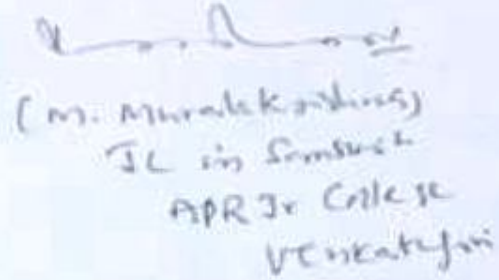 (M. Muralikrishna)
JL in Sanskrit
APR Jr College
Venkatagiri